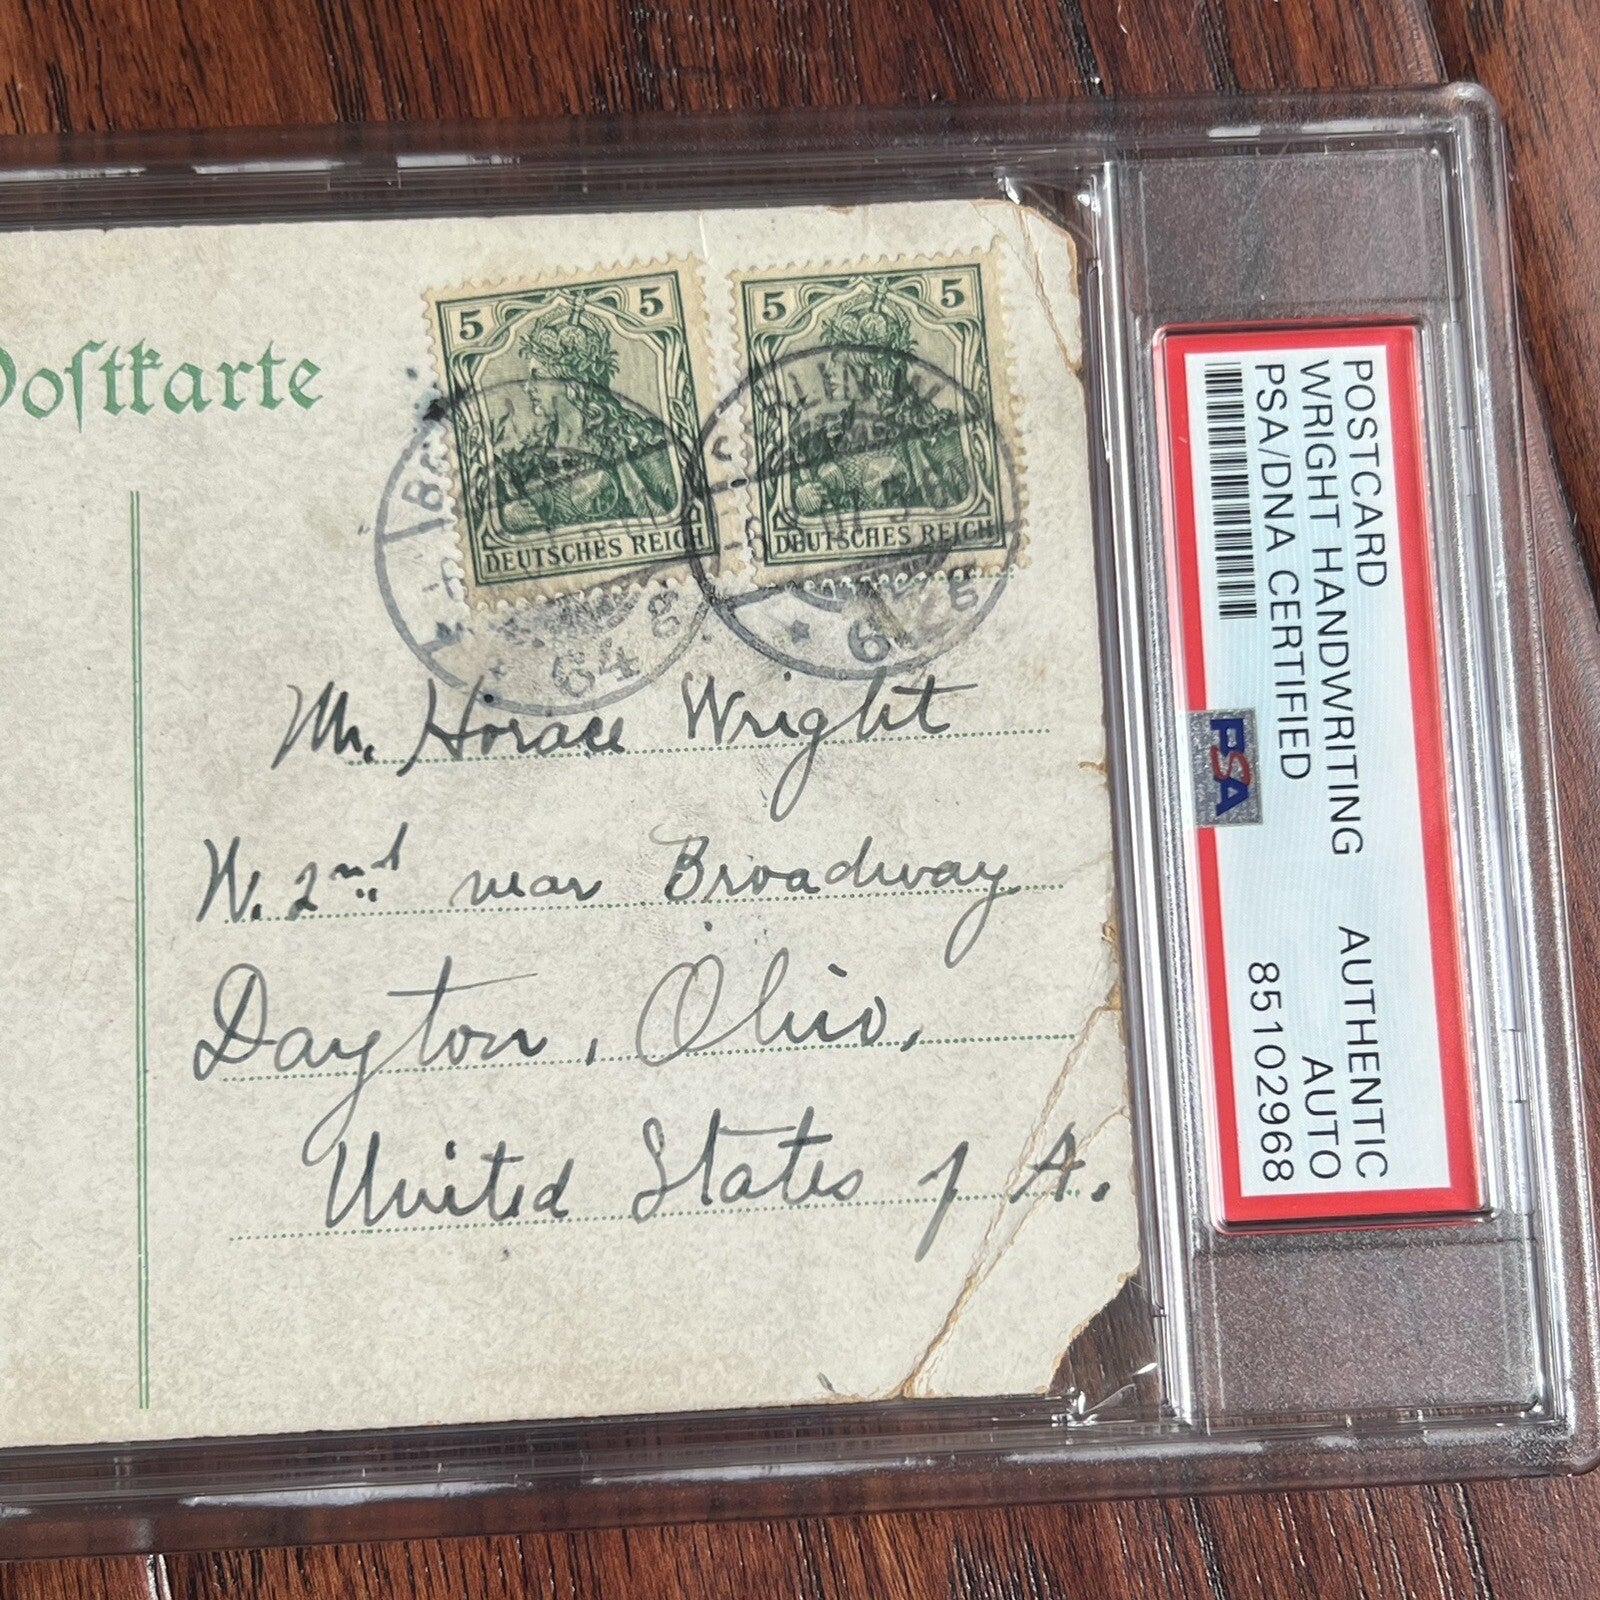 Postkarte
5 5
DEUTSCHES REICH
5 5
DEUTSCHES REICH
64 8
6
Mr. Horace Wright
W. 2nd near Broadway
Dayton, Ohio,
United States of A.
POSTCARD
WRIGHT HANDWRITING AUTHENTIC
PSA/DNA CERTIFIED AUTO
85102968
PSA